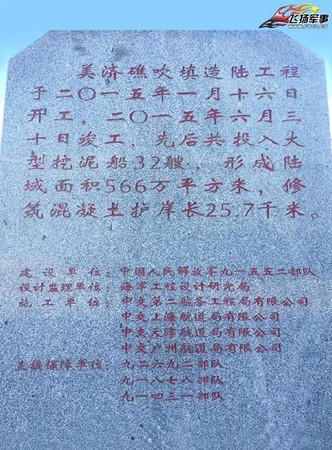 飞扬军事
美济礁吹填造陆工程
于二〇一五年一月十六日
开工，二〇一五年六月三
十日竣工，先后共投入大
型挖泥船32艘，形成陆
域面积566万平方米，修
筑混凝土护岸长25.7千米。
建设单位：中国人民解放军九一五五二部队
设计监理单位：海军工程设计研究局
施工单位：中交第二航务工程局有限公司
中交上海航道局有限公司
中交天津航道局有限公司
中交广州航道局有限公司
支援保障单位：九二六九二部队
九一八七八部队
九一四三一部队